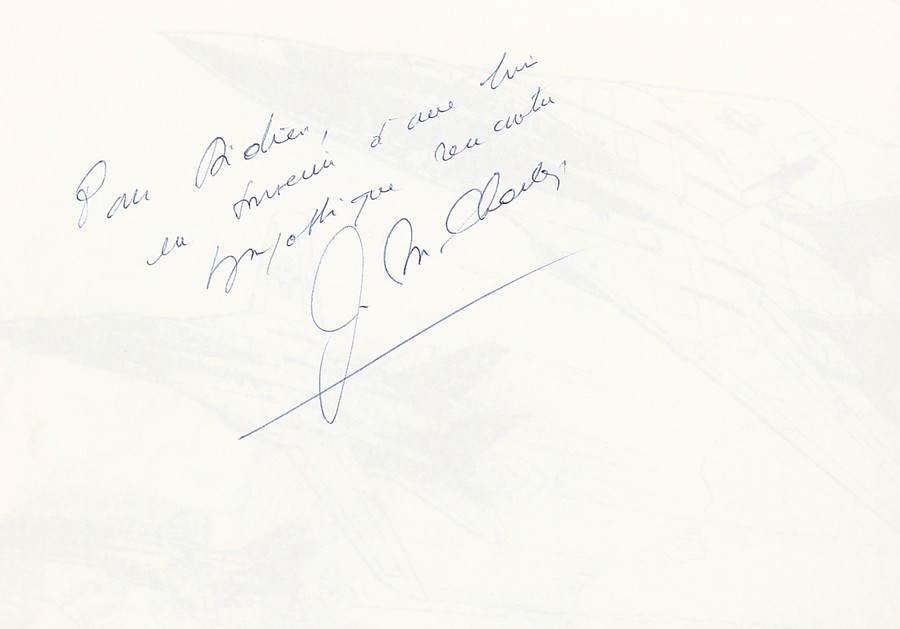 Pour Didier,
en souvenir d'une très
sympathique rencontre
J. M. Charlier